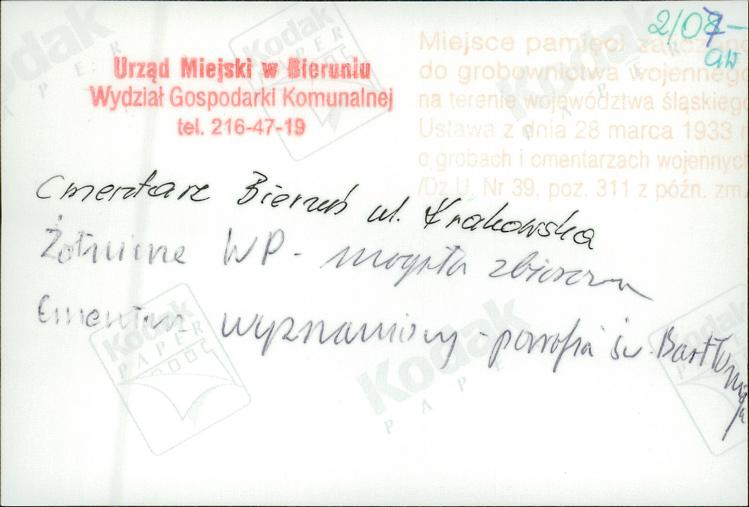 2/07-
aw
Urząd Miejski w Bieruniu
Wydział Gospodarki Komunalnej
tel. 216-47-19
Miejsce pamięci
do grobownictwa wojennego
na terenie województwa śląskieg
Ustawa z dnia 28 marca 1933
o grobach i cmentarzach wojennyc
/Dz.U. Nr 39, poz. 311 z późn. zm.
Cmentarz Bieruń ul. Krakowska
Żołnierze WP - mogiła zbiorowa
Cmentarz wyznaniowy - parafia św. Bartłomieja
Kodak
PAPER
Kodak
PAPER
Kodak
PAPER
Kodak
PAPER
Kodak
PAPER